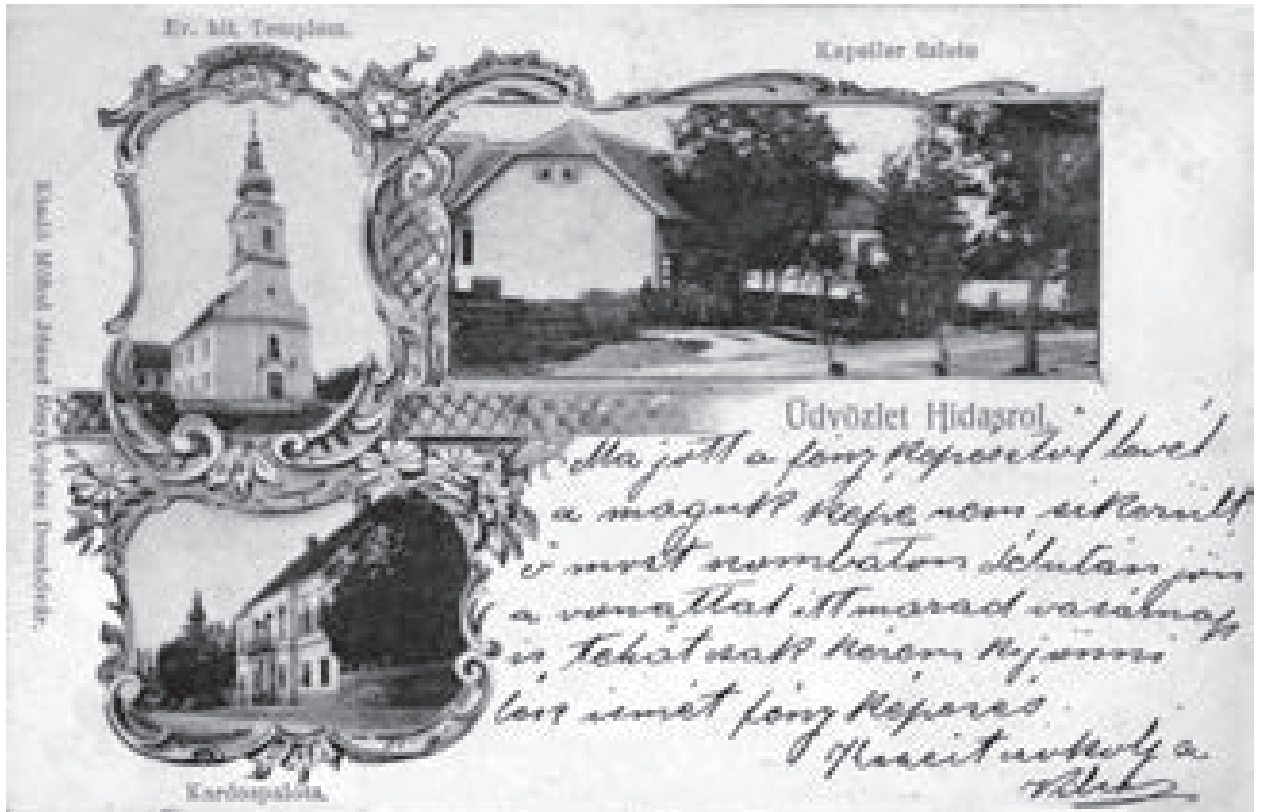 Ev. hit. Templom.
Kapeller üzlete
Kiadó Möhol József fényképész Bonyhádon.
Üdvözlet Hidasrol.
Ma jött a fény képesztöl levél
a maguk képe nem sikerült
ő most szombaton délután jön
a vonattal itt marad vasárnap
is, tehát csak kérem kijönni
lesz ismét fény képezés.
Kezeit csókolja
Kardospalota.